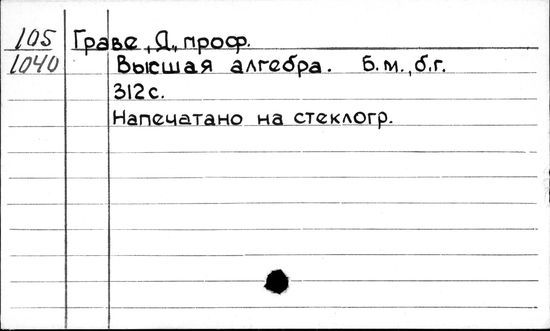 105 Граве, Д., проф.
1040 Высшая алгебра. Б.м., б.г.
312 с.
Напечатано на стеклогр.